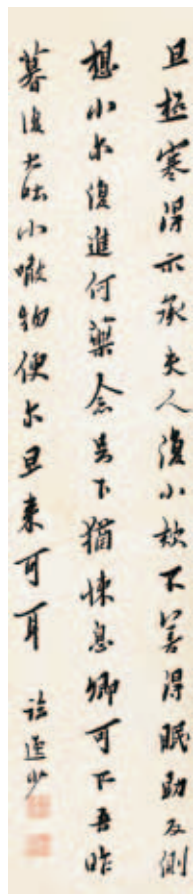 旦極寒得示承夫人復小欬不善得眠助反側
想小尔復進何藥念足下猶悚息卿可不吾昨
暮復大吐小噉物便尔旦来可耳